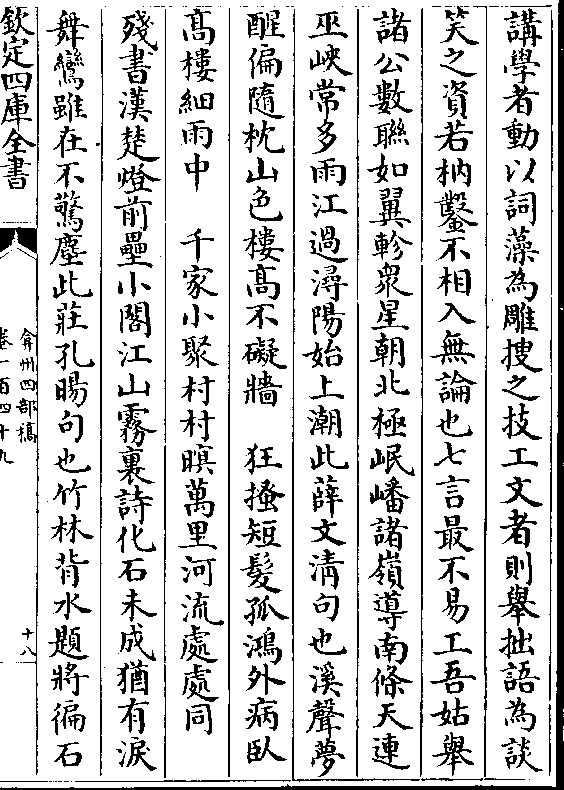 講學者動以詞藻為雕搜之技工文者則舉拙語為談
笑之資若枘鑿不相入無論也七言最不易工吾姑舉
諸公數聯如翼軫衆星朝北極岷嶓諸嶺導南條天連
巫峽常多雨江過潯陽始上潮此薛文清句也溪聲夢
醒偏隨枕山色樓髙不礙牆　狂搔短髮孤鴻外病臥
髙樓細雨中　千家小聚村村暝萬里河流處處同
殘書漢楚燈前壘小閣江山霧裏詩化石未成猶有淚
舞鸞雖在不驚塵此莊孔暘句也竹林背水題將徧石
欽定四庫全書
弇州四部稿
卷一百四十九
十八